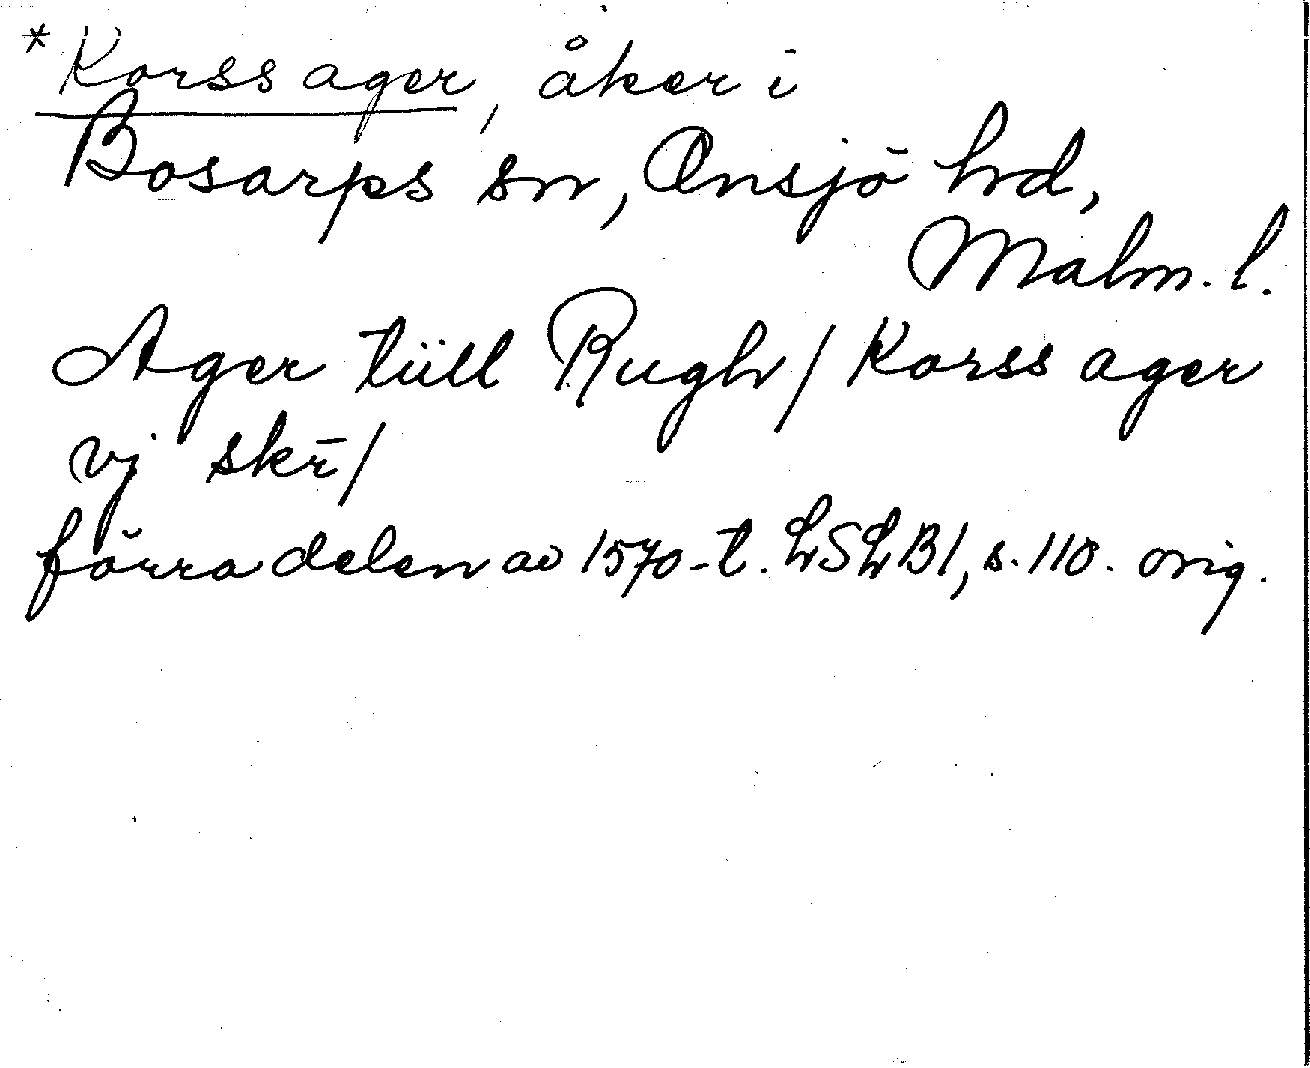 *Korss ager, åker i
Bosarps sn, Onsjö hd,
Malm. l.
Ager tüll Rugh/Korss ager
vj skr̄/
förra delen av 1570-t. LSLB1, s. 110. orig.